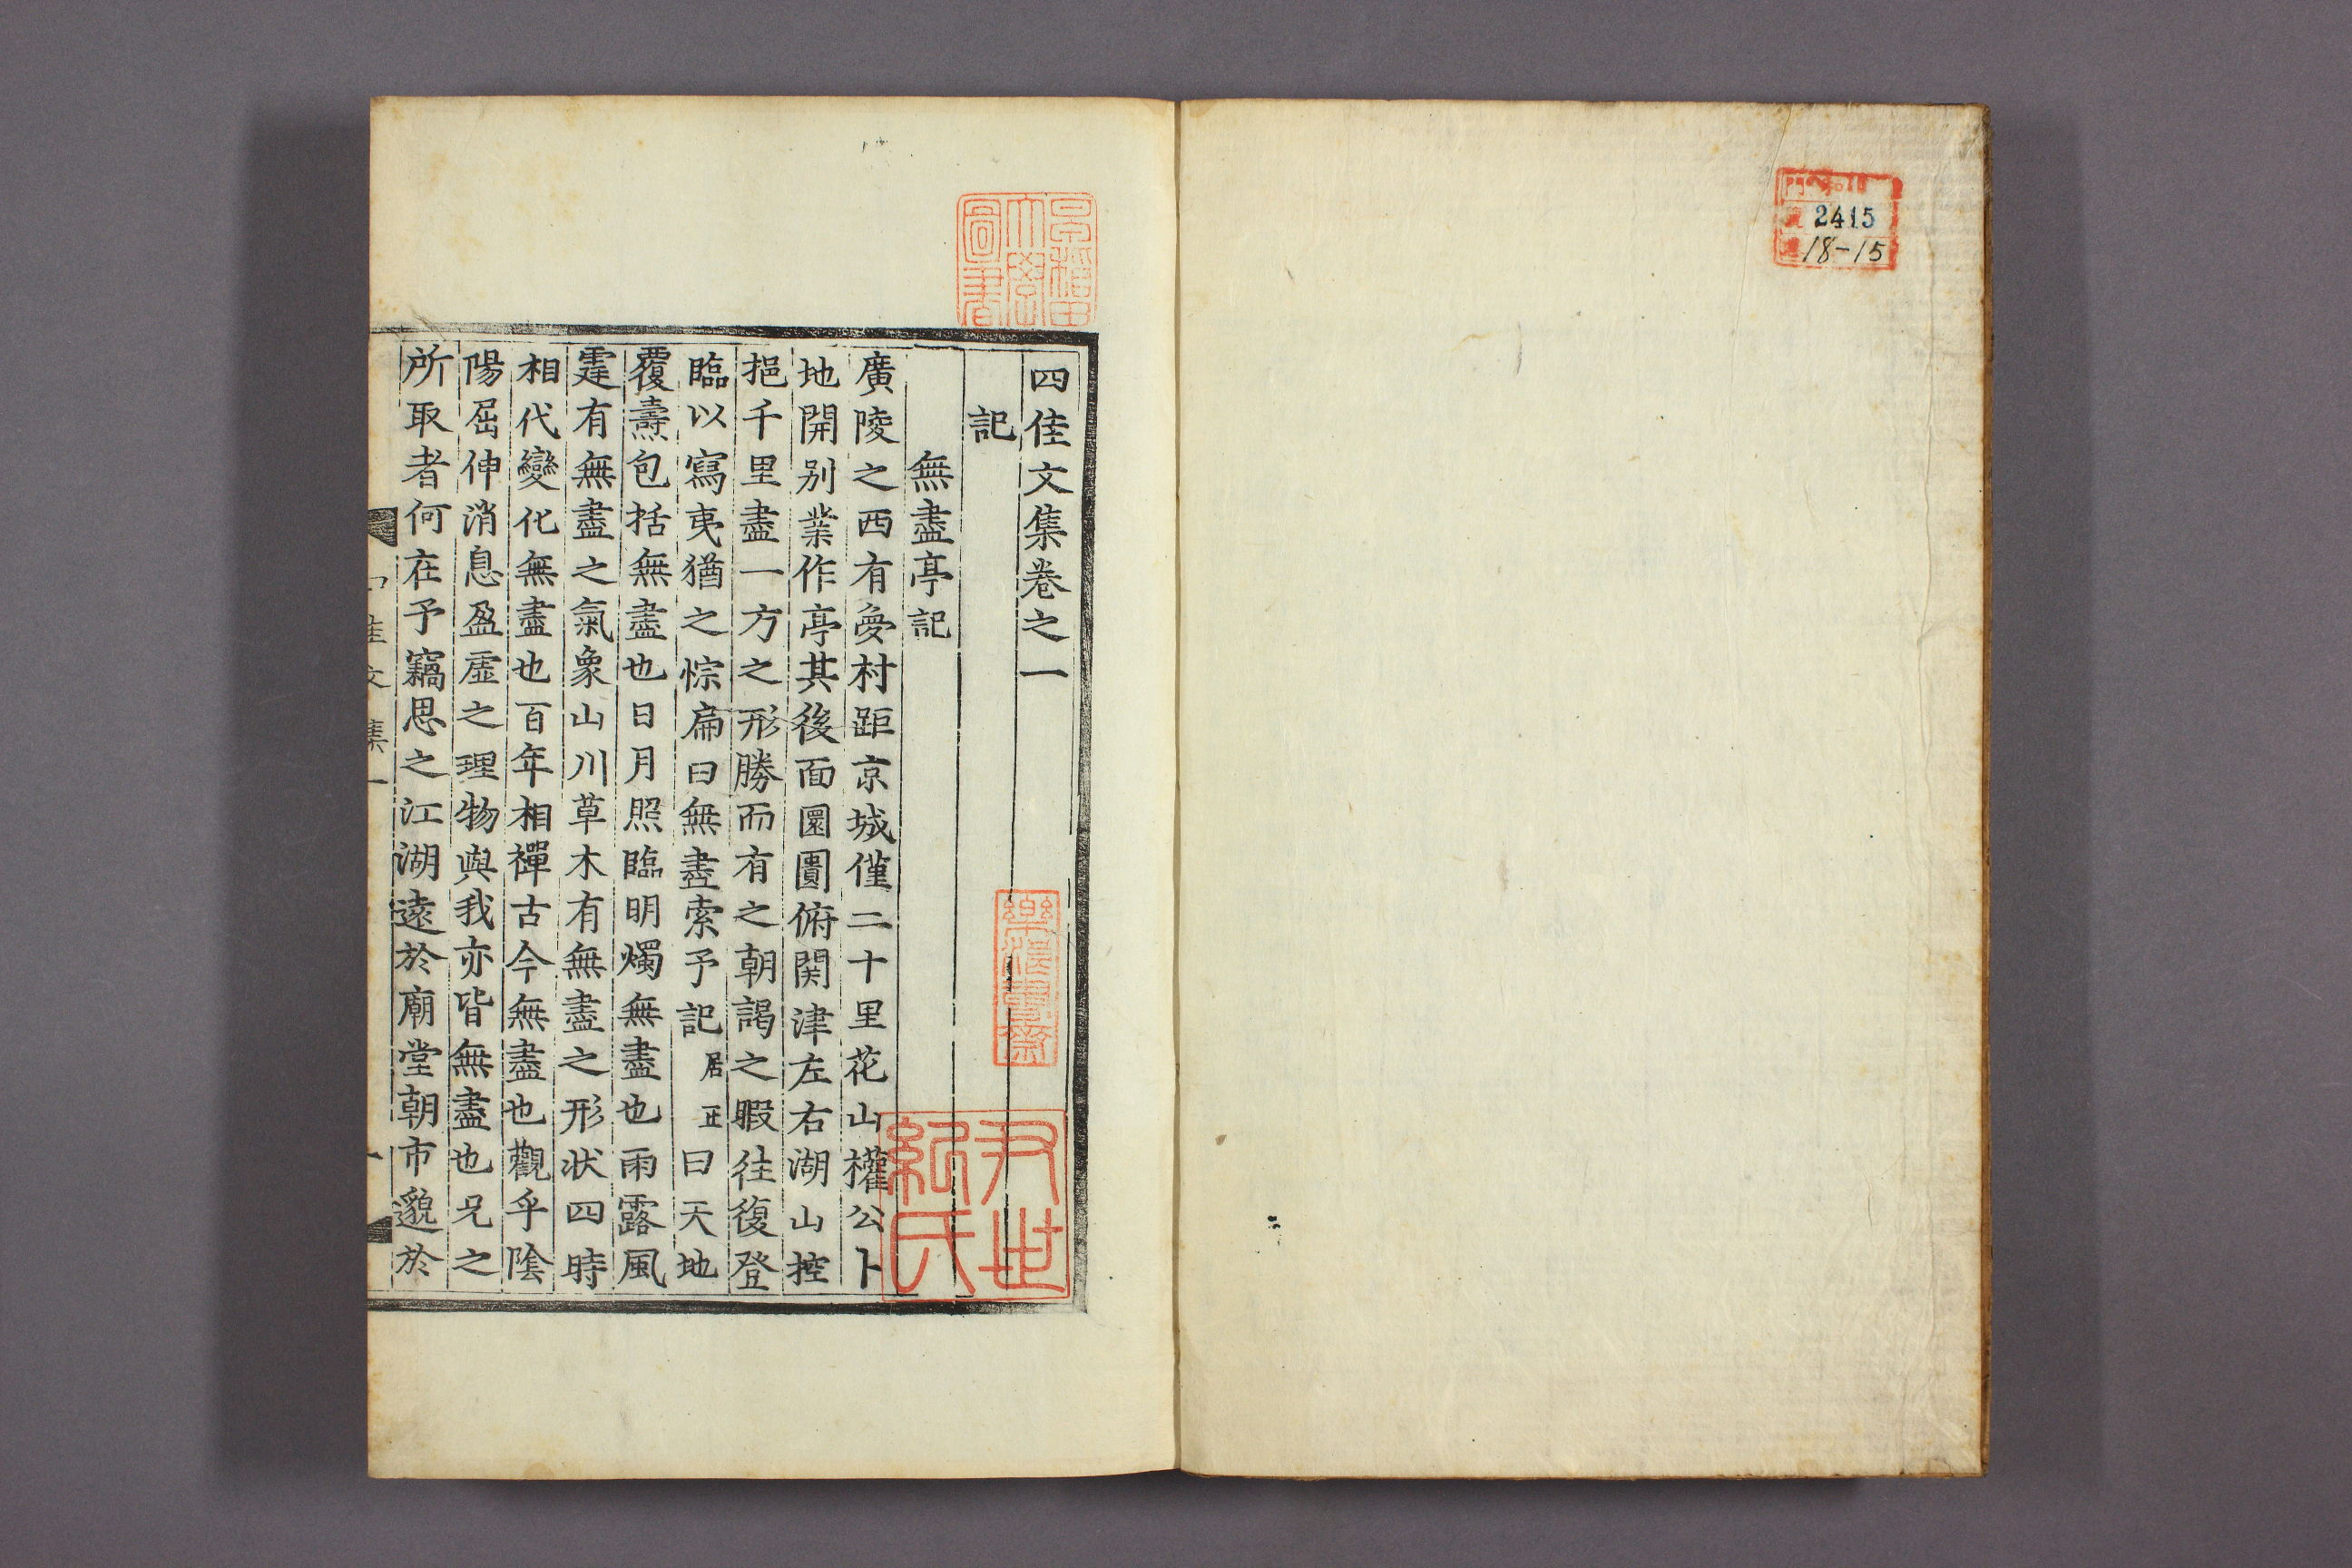 2415
18-15
早稲田
大學
圖書
四佳文集卷之一
記
無盡亭記
廣陵之西有夢村距京城僅二十里花山權公卜
地開别業作亭其後面園圃俯関津左右湖山控
挹千里盡一方之形勝而有之朝謁之暇往復登
臨以寫夷猶之悰扁曰無盡索予記居正曰天地
覆燾包括無盡也日月照臨明燭無盡也雨露風
霆有無盡之氣象山川草木有無盡之形状四時
相代變化無盡也百年相禪古今無盡也觀乎陰
陽屈伸消息盈虛之理物與我亦皆無盡也兄之
所取者何在予竊思之江湖遠於廟堂朝市邈於
佳文集一
一
尹世
紀氏